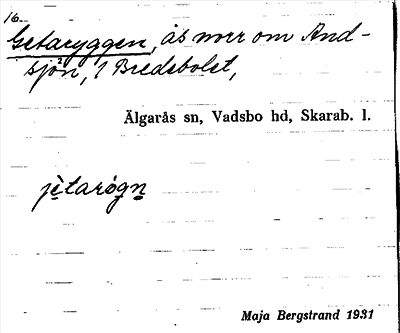 16.
Getaryggen, ås norr om And-
sjön, 1 Bredsbolet,
Älgarås sn, Vadsbo hd, Skarab. l.
jètarøgn
Maja Bergstrand 1931